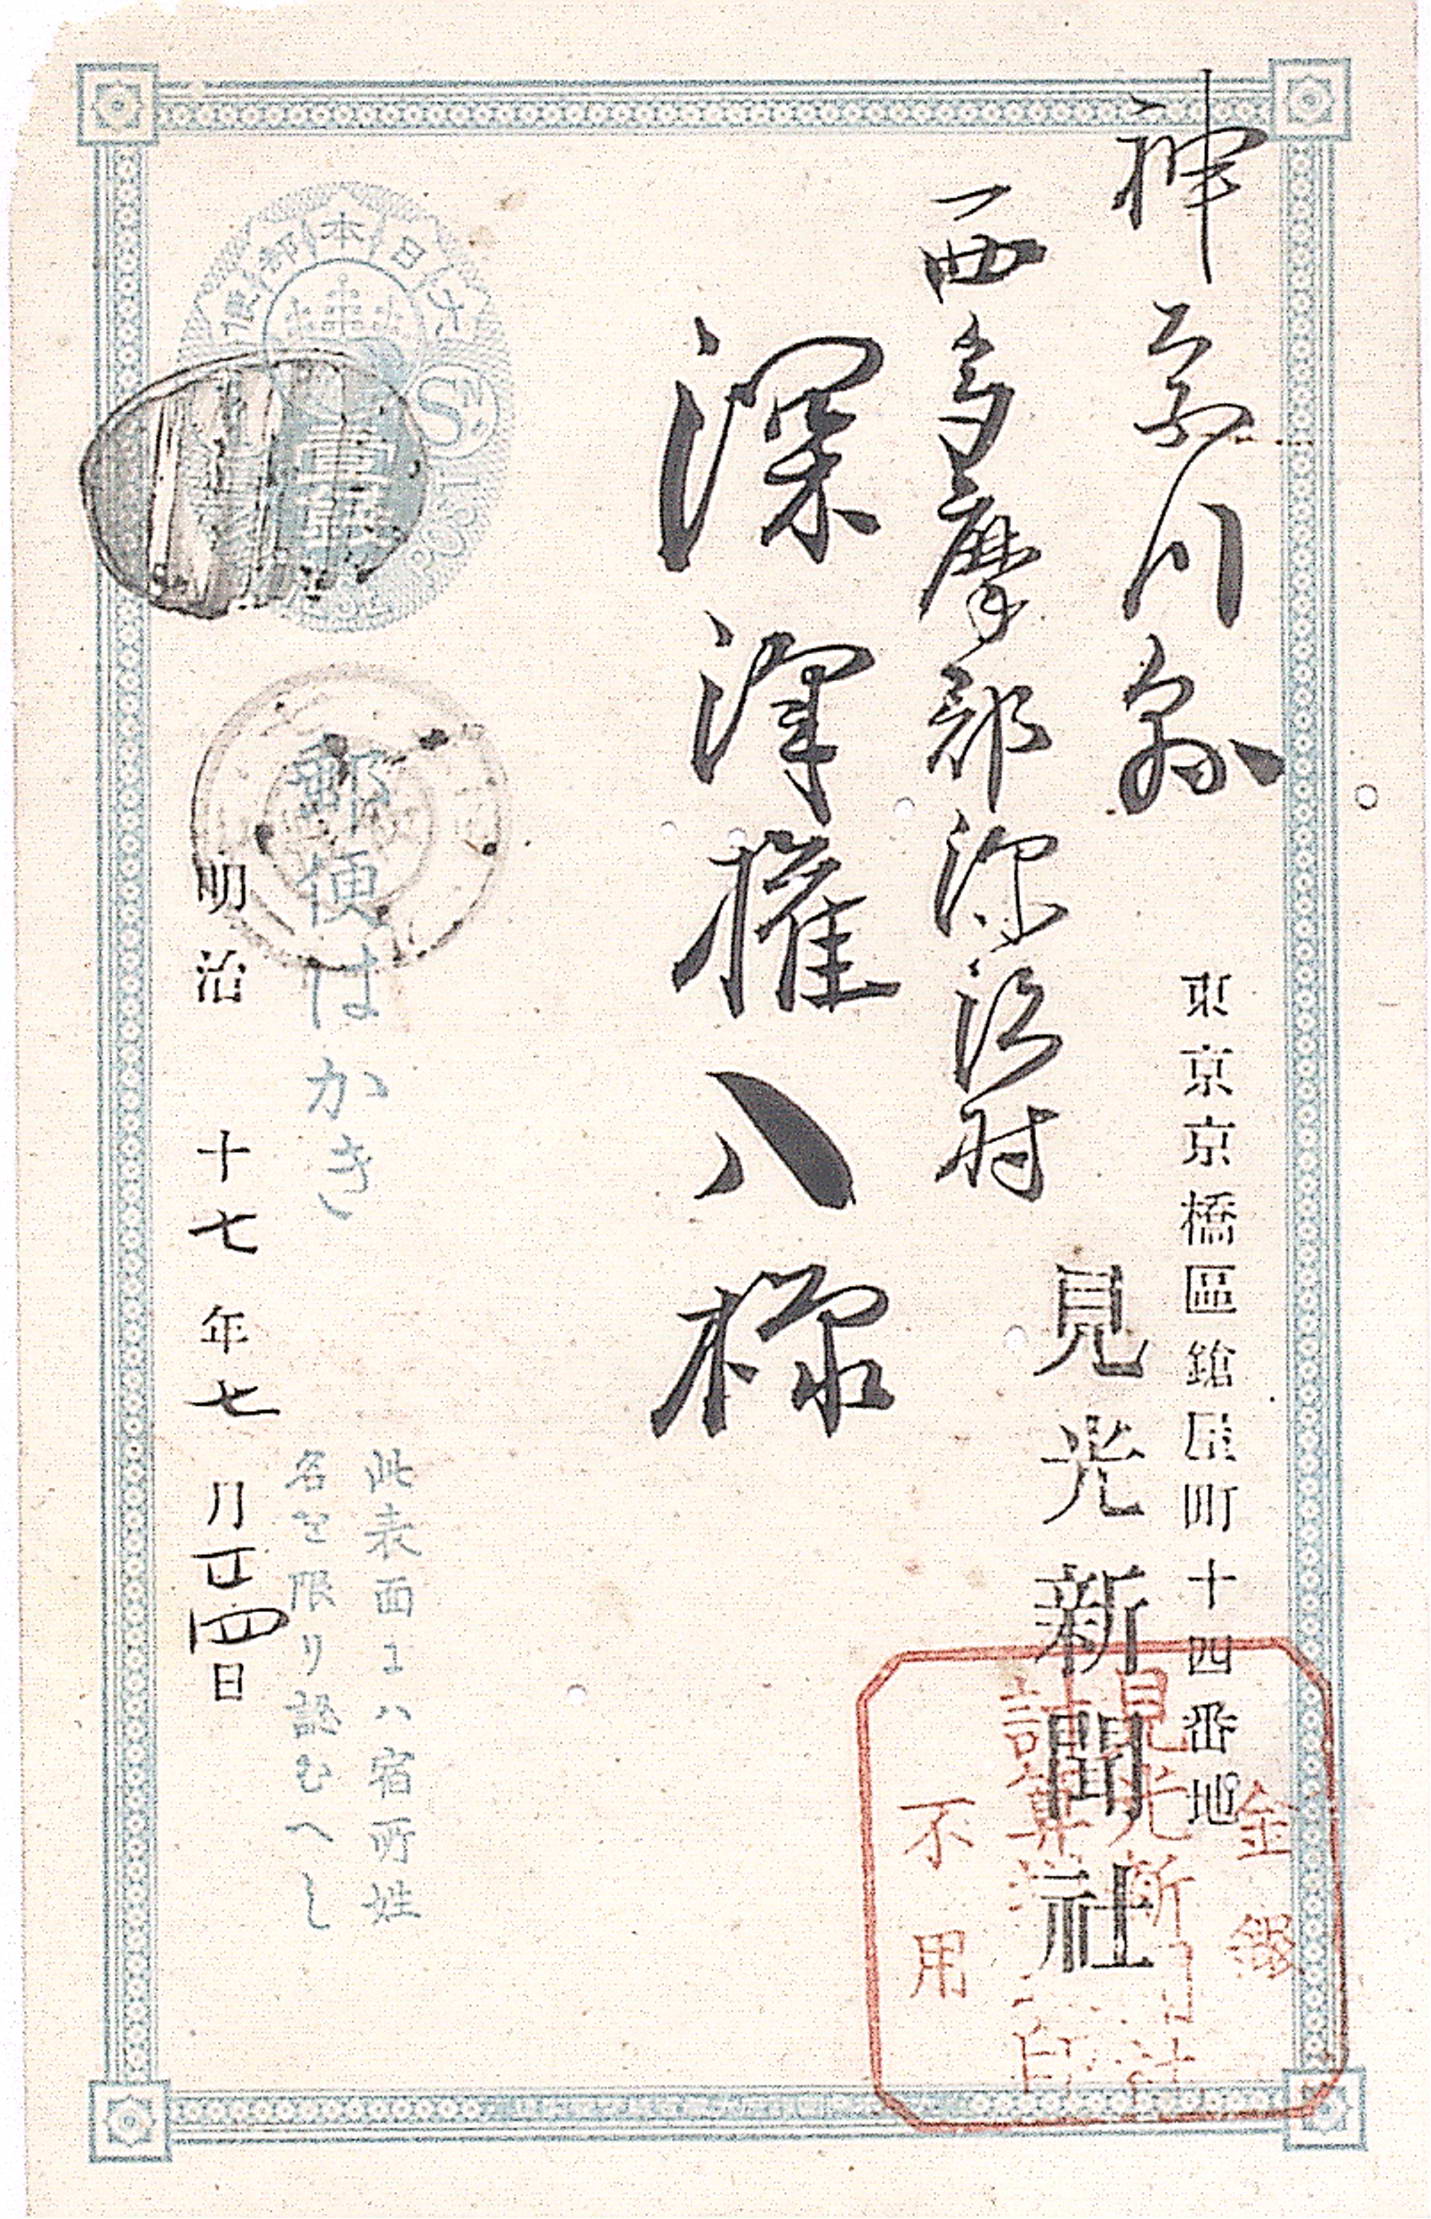 神奈川縣
西多摩郡深沢村
深澤權八様
東京京橋區鎗屋町十四番地
見光新聞社
見光新聞社
計算
金銀
不用
大日本郵便
壹錢
郵便はかき
此表面にハ宿所姓
名を限り認むへし
明治十七年七月廿四日